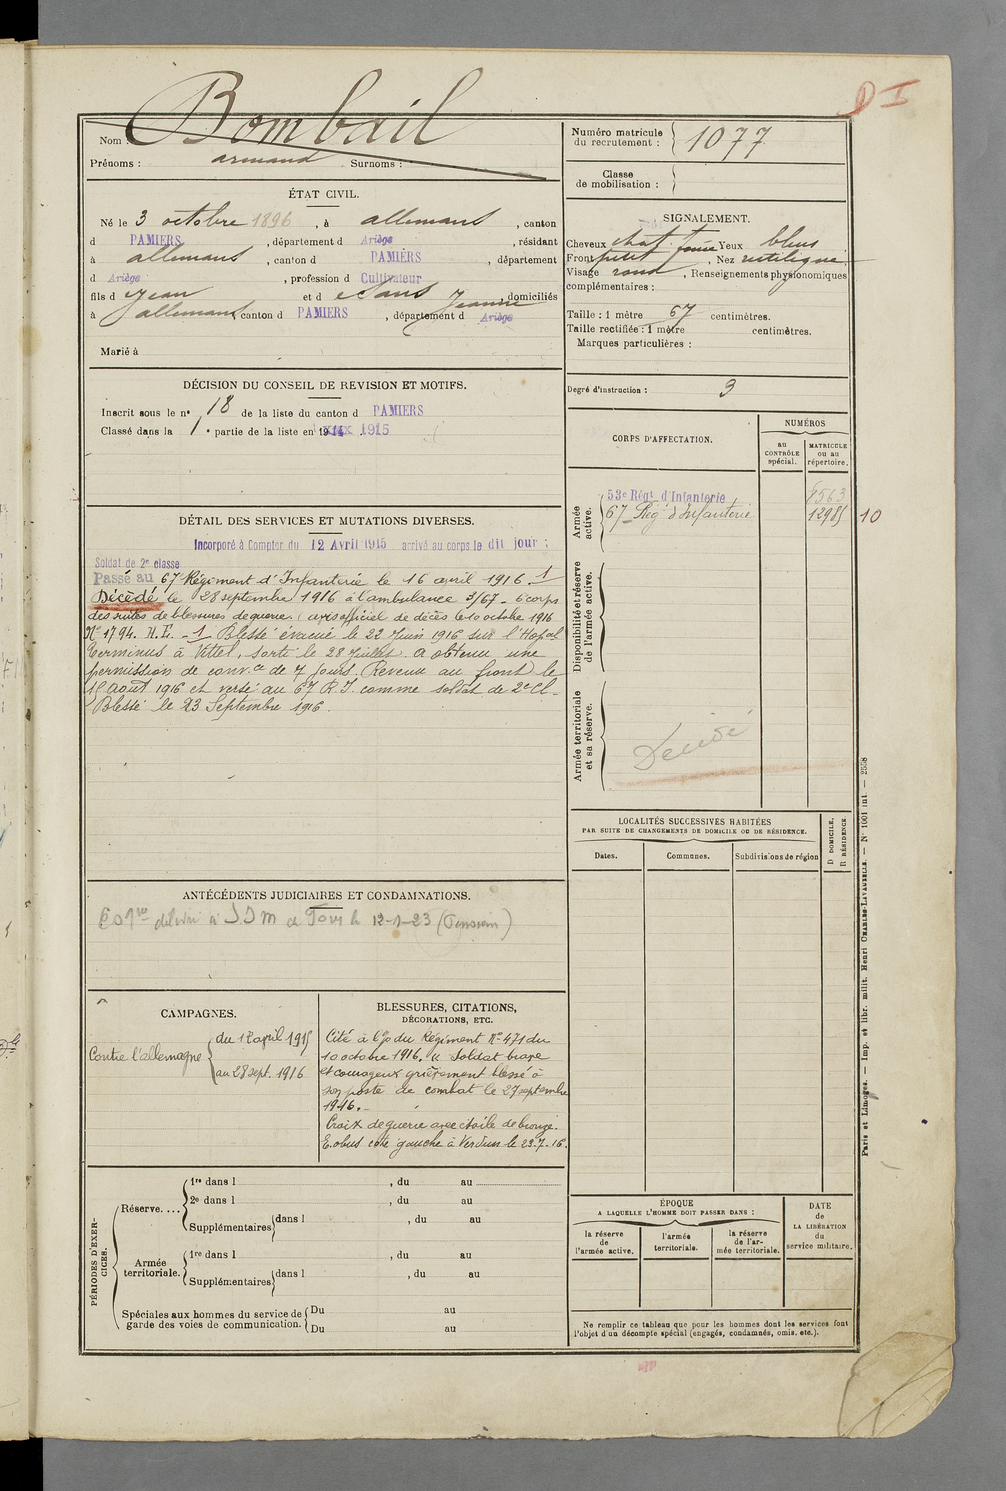 D I
Nom : Bombail
Prénoms : armand Surnoms :
Numéro matricule
du recrutement : 1077
Classe
de mobilisation :
ÉTAT CIVIL.
Né le 3 octobre 1896, à allemans, canton
d PAMIERS, département d Ariège, résidant
à allemans, canton d PAMIERS, département
d Ariège, profession d Cultivateur
fils d Jean et d Sans Jeanne, domiciliés
à allemans canton d PAMIERS, département d Ariège
Marié à
SIGNALEMENT.
Cheveux chat. foncé Yeux bleus
Front petit, Nez rectiligne
Visage rond, Renseignements physionomiques
complémentaires :
Taille : 1 mètre 67 centimètres.
Taille rectifiée : 1 mètre centimètres.
Marques particulières :
Degré d'instruction : 3
DÉCISION DU CONSEIL DE REVISION ET MOTIFS.
Inscrit sous le n° 18 de la liste du canton d PAMIERS
Classé dans la 1e partie de la liste en 1915
CORPS D'AFFECTATION.
NUMÉROS
au
CONTRÔLE
spécial.
MATRICULE
ou au
répertoire.
Armée
active.
53e Régt d'Infanterie 8563
67e Régt d'Infanterie 12985 10
Disponibilité et réserve
de l'armée active.
Armée territoriale
et sa réserve.
Décédé
DÉTAIL DES SERVICES ET MUTATIONS DIVERSES.
Incorporé à Compter du 12 Avril 1915 arrivé au corps le dit jour ;
Soldat de 2e classe
Passé au 67e Régiment d'Infanterie le 16 avril 1916. 1
Décédé le 28 septembre 1916 à l'ambulance 3/67 - 6e corps
des suites de blessures de guerre. (avis officiel de décès le 10 octobre 1916
No 1794. H.E. - 1 Blessé évacué le 22 Juin 1916 sur l'Hopal
Terminus à Vittel, sorti le 28 Juillet. a obtenu une
permission de conv.ce de 7 jours. Revenu au front le
18 août 1916 et versé au 67 R.I. comme soldat de 2e Cl -
Blessé le 23 Septembre 1916.
LOCALITÉS SUCCESSIVES HABITÉES
PAR SUITE DE CHANGEMENTS DE DOMICILE OU DE RÉSIDENCE.
Dates.
Communes.
Subdivisions de région
D DOMICILE.
R RÉSIDENCE
ANTÉCÉDENTS JUDICIAIRES ET CONDAMNATIONS.
délivré à le 12-1-23 (Pension)
CAMPAGNES.
Contre l'allemagne du 12 april 1915
au 28 sept. 1916
BLESSURES, CITATIONS,
DÉCORATIONS, ETC.
Cité à l'o du Régiment No 471 du
10 octobre 1916. « Soldat brave
et courageux grièvement blessé à
son poste de combat le 27 septembre
1916. -
Croix de guerre avec étoile de bronze.
E. obus côté gauche à Verdun le 23-7-16.
PÉRIODES D'EXER-
CICES.
Réserve....
1re dans l , du au
2e dans l , du au
Supplémentaires dans l , du au
Armée
territoriale.
1re dans l , du au
Supplémentaires dans l , du au
Spéciales aux hommes du service de
garde des voies de communication.
Du au
Du au
ÉPOQUE
A LAQUELLE L'HOMME DOIT PASSER DANS :
la réserve
de
l'armée active.
l'armée
territoriale.
la réserve
de l'ar-
mée territoriale.
DATE
de
LA LIBÉRATION
du
service militaire.
Ne remplir ce tableau que pour les hommes dont les services font
l'objet d'un décompte spécial (engagés, condamnés, omis, etc.).
Paris et Limoges. — Imp. et libr. milit. Henri CHARLES-LAVAUZELLE. — N° 1001 int. — 2558